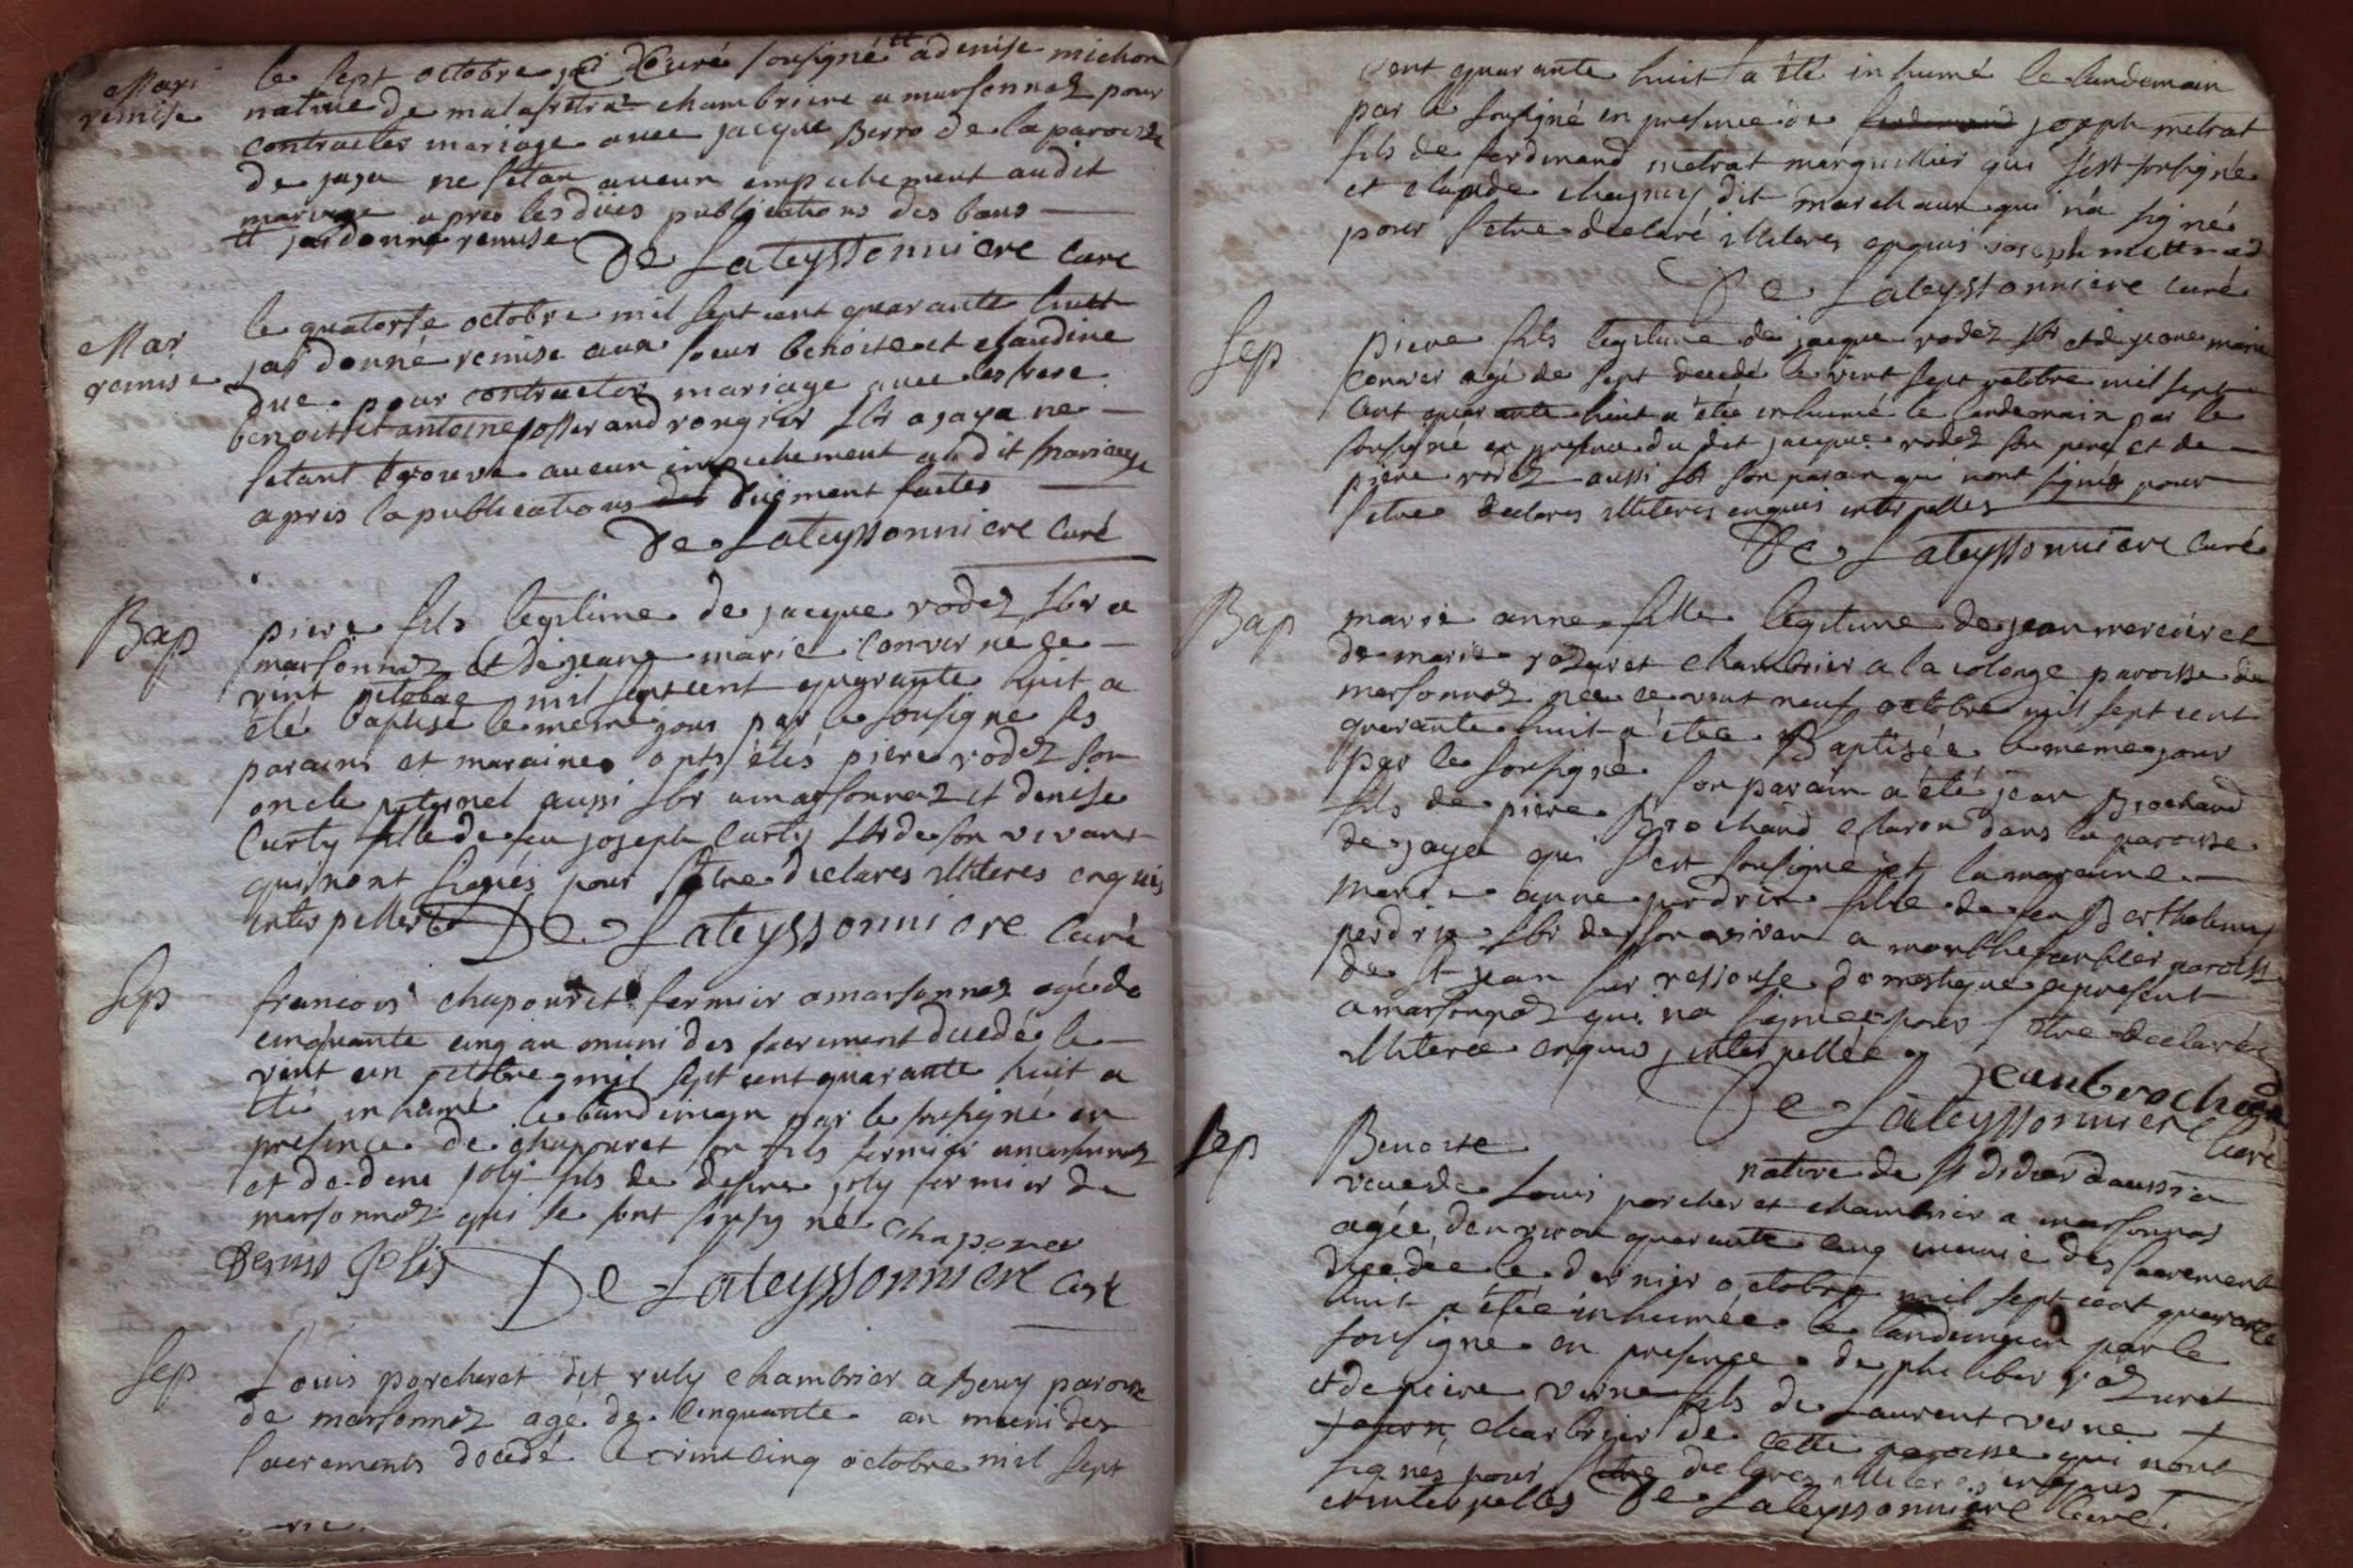 Mari
remise
le sept octobre je curé soussigné tt a denise michon
native de malafretaz chambriere a marsonnaz pour
contracter mariage avec jacque Berro de la paroisse
de jaya ne sétan aucun empechement audit
mariage apres les dües publications des bans
tt jai donné remise
De Lateyssonniere curé
Mar
remise
le quatorse octobre mil sept cent quarante huit
jai donné remise aux soeur benoite et claudine
due pour contracter mariage avec les frere
benoit et antoine josserand rongier lbr a jaya ne
sétant trouvé aucun empechement audit mariage
apris la publications düement faites
De Lateyssonniere Curé
Bap
piere fils legitime de jacque rodez lbr a
marsonnaz et de jeane marie conver ne le
vint octobre mil sept cent quarante huit a
été baptisé le meme jour par le sousigné ses
parains et maraines onts étés piere rodez son
oncle paternel aussi lbr a marsonnaz et denise
Curty fille de feu joseph Curty lbr de son vivant
qui nont signés pour sétre declares illiteres enquis
interpelles
De Lateyssonniere Curé
Sep
francois chapouret fermier a marsonnaz agé de
cinquante cinq an muni des sacrement decedé le
vint un octobre mil sept cent quarante huit a
été inhumé le landemain par le sousigné en
presence de chapouret son fils fermier a marsonnaz
et de deni joly fils de denis joly fermier de
marsonnaz qui se sont sousigné
chaponer
Denis Jolis
De Lateyssonniere Curé
Sep
Louis porcheret dit ruly chambrier a Beny paroisse
de marsonnaz agé de cinquante an muni des
sacrements decedé le vint cinq octobre mil sept
cent quarante huit a été inhumé le landemain
par le sousigné en presence de joseph metrat
fils de ferdinand metrat marguillier qui sest sousigné
et claude chagney dit marchaux qui na signé
pour sétre declaré illiteres enquis joseph mettrad
De Lateyssonniere Curé
Sep
piere fils legitime de jacque rodez lbr et de jeane marie
conver agé de sept decedé le vint sept octobre mil sept
cent quarante huit a étée inhumé le landemain par le
sousigné en presence du dit jacque rodez son pere et de
piere rodez aussi lbr son parain qui nont signés pour
sétre declares illiteres enquis interpelles
De Lateyssonniere Curé
Bap
marie anne fille legitime de jean mercier et
de marie rozuret chambrier a la colonge paroisse de
marsonnaz née le vint neuf octobre mil sept cent
quarante huit a étée Baptisée le meme jour
par le sousigné son parain a été jean Brochand
fils de piere Brochand claron dans la paroisse
de jaya qui sest sousigné et la maraine
marie anne perdrix fille de feu Bartholemy
perdrix lbr de son vivan a paroisse
de St jean sur ressouse domestique apresent
a marsonnaz qui na signée pour sétre declarée
illiterée enquis interpellée
jean brochan
De Lateyssonniere Curé
Sep
Benoite native de St didier daussia
veue de Louis porcheret chambrier a marsonnas
agée denviron quarante cinq munie des sacrement
decedée le dernier octobre mil sept cent quarante
huit a étée inhumée le landemain par le
sousigné en presence de philiber rozuret
et de piere verne fils de Laurent verne
chambrier de cette paroisse qui nont
signés pour sétre declarez illiteres enquis
et interpelles De Lateyssonniere Curé